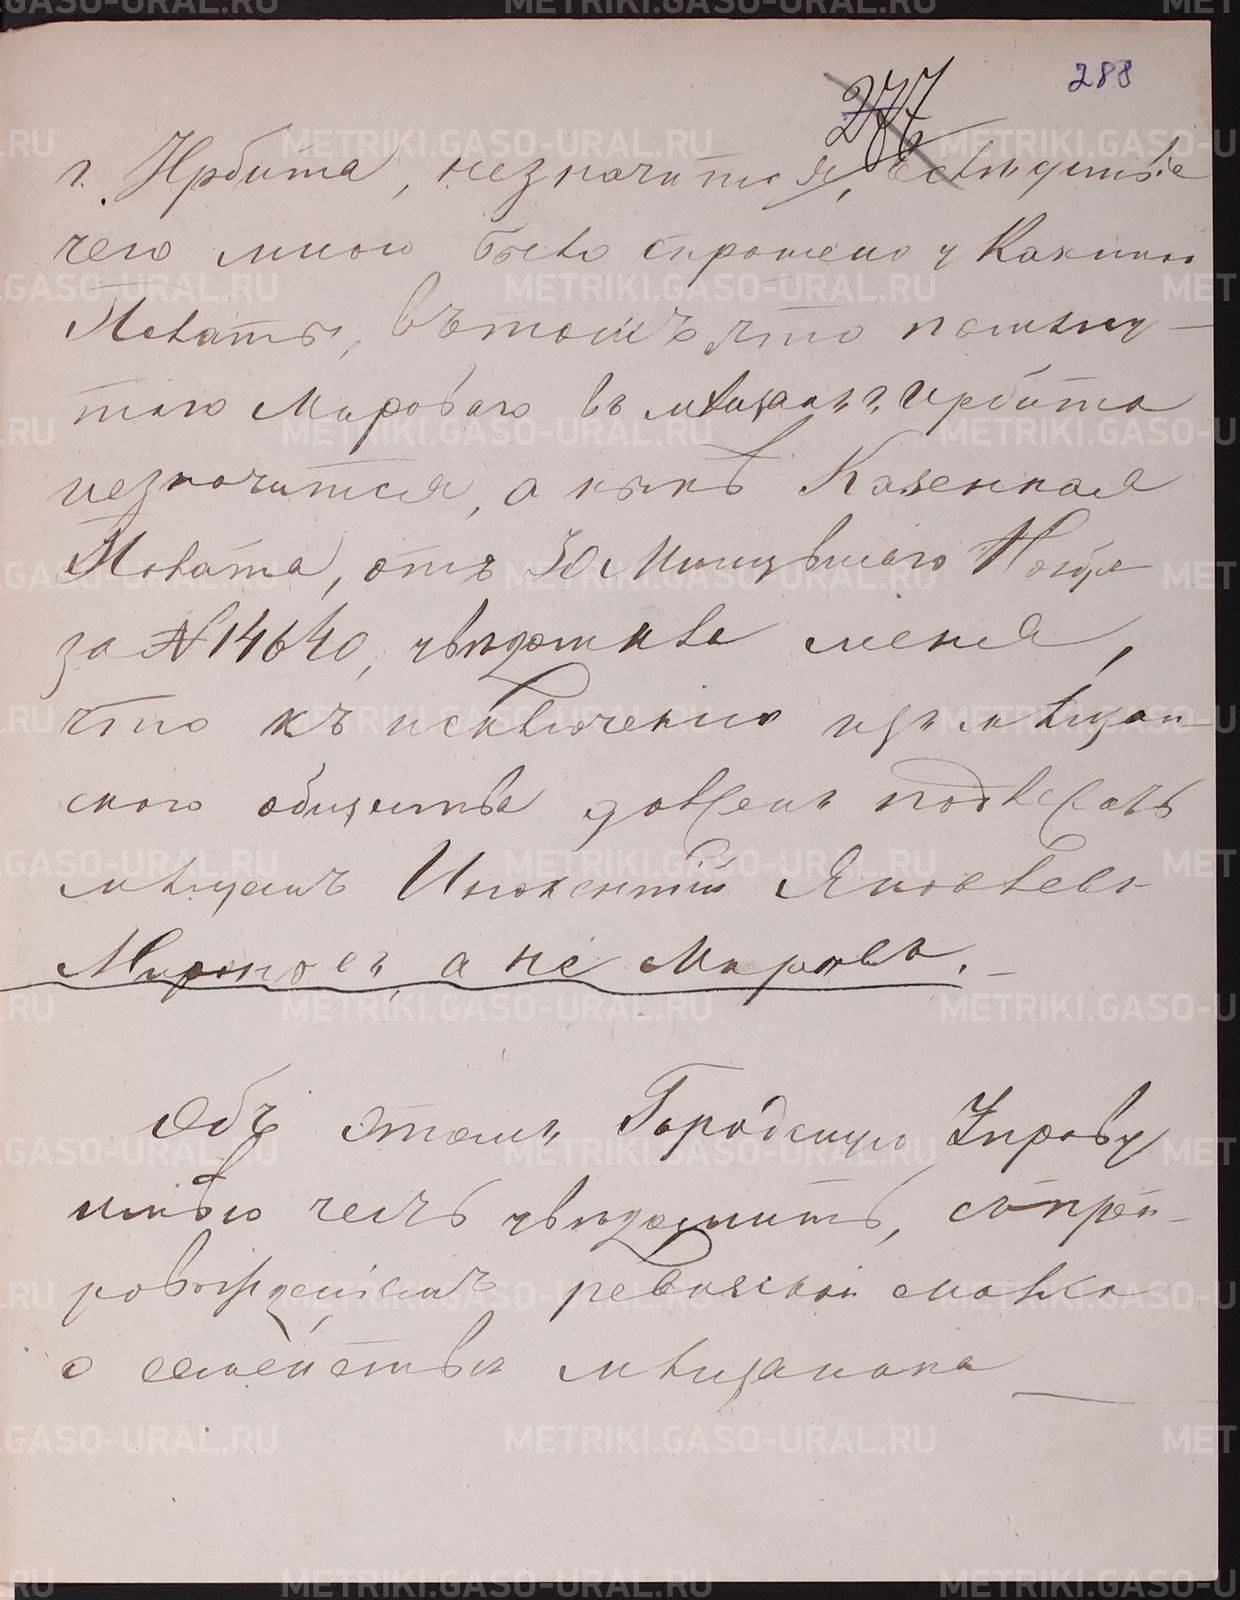 288
277
г. Ирбита, незначится, вследствіе
чего мною было спрошено у Казенной
Палаты, въ томъ что помяну-
таго Мироваго въ мѣщанѣ г. Ирбита
незначится, а нынѣ Казенная
Палата, отъ 30 Минувшаго Ноября
за № 14640, увѣдомила меня,
что къ исключенію изъ мѣщан-
скаго общества долженъ подлежать
мѣщанинъ Инокентій Яковлевъ
Мироновъ, а не Мировъ.
Объ этомъ Городскую Управу
имѣю честь увѣдомить, съ препро-
вожденіемъ ревизской сказки
о семействѣ мѣщанина